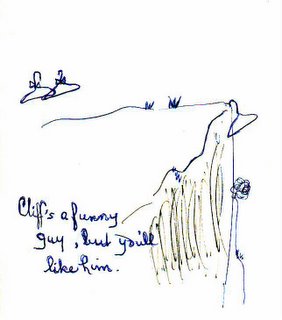 Cliff's a funny
guy, but you'll
like him.